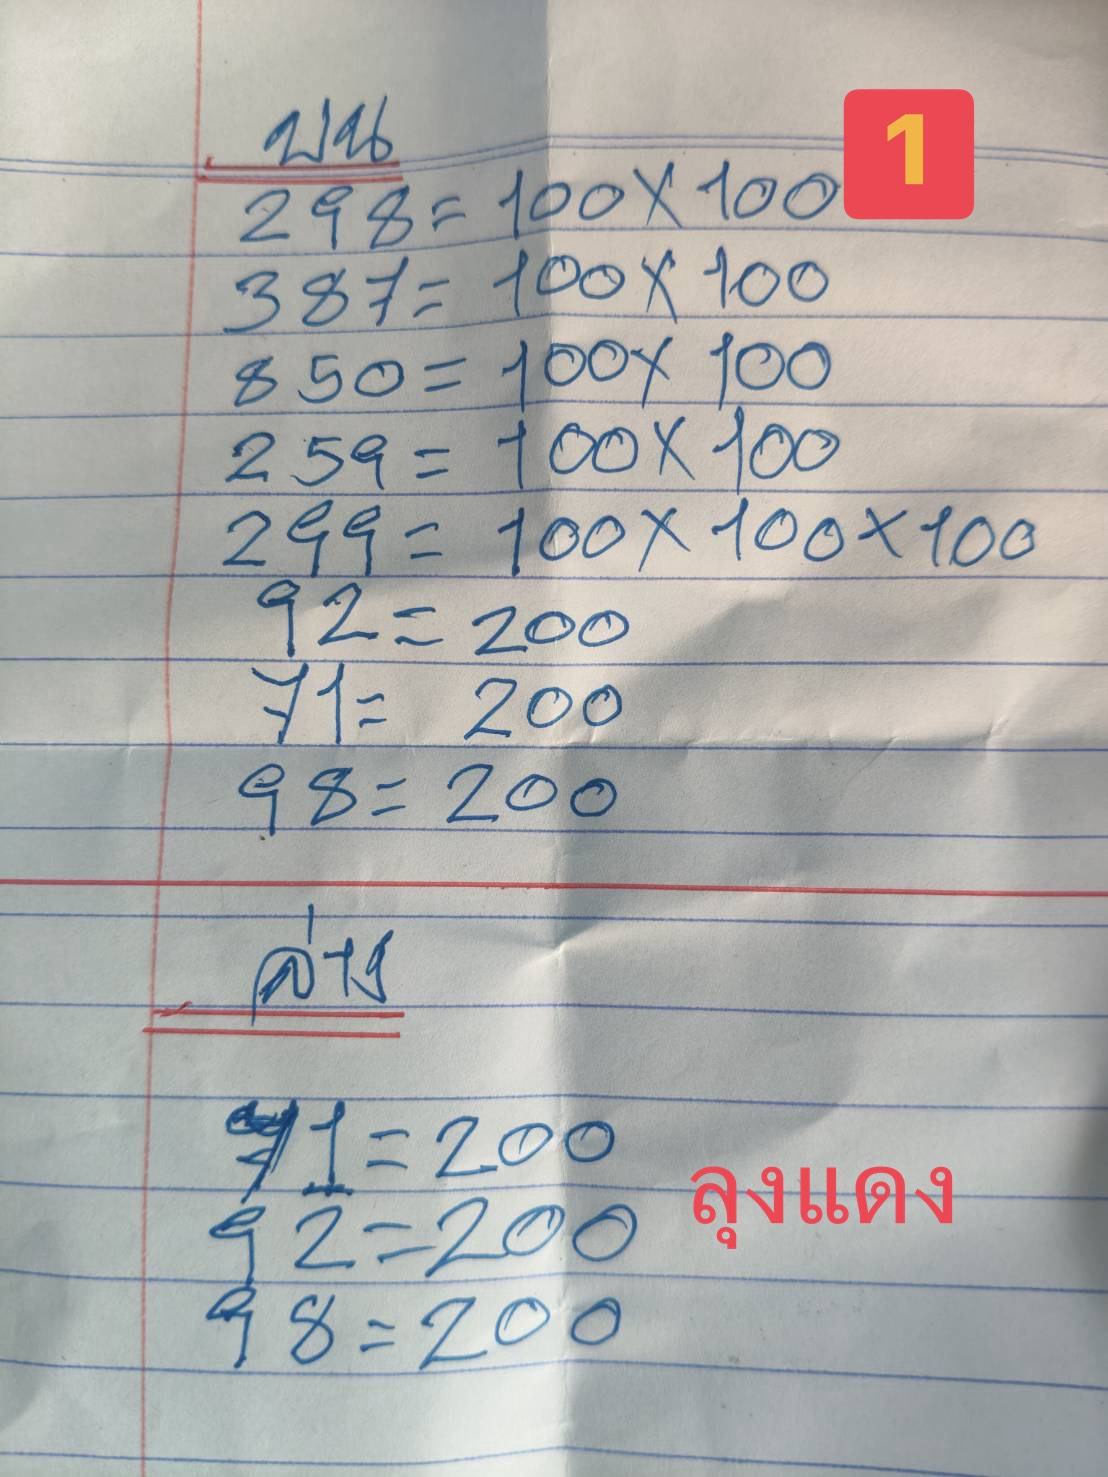 1
บน
298 = 100 X 100
387 = 100 X 100
850 = 100 X 100
259 = 100 X 100
299 = 100 X 100 X 100
92 = 200
71 = 200
98 = 200
ล่าง
71 = 200
92 = 200
98 = 200
ลุงแดง